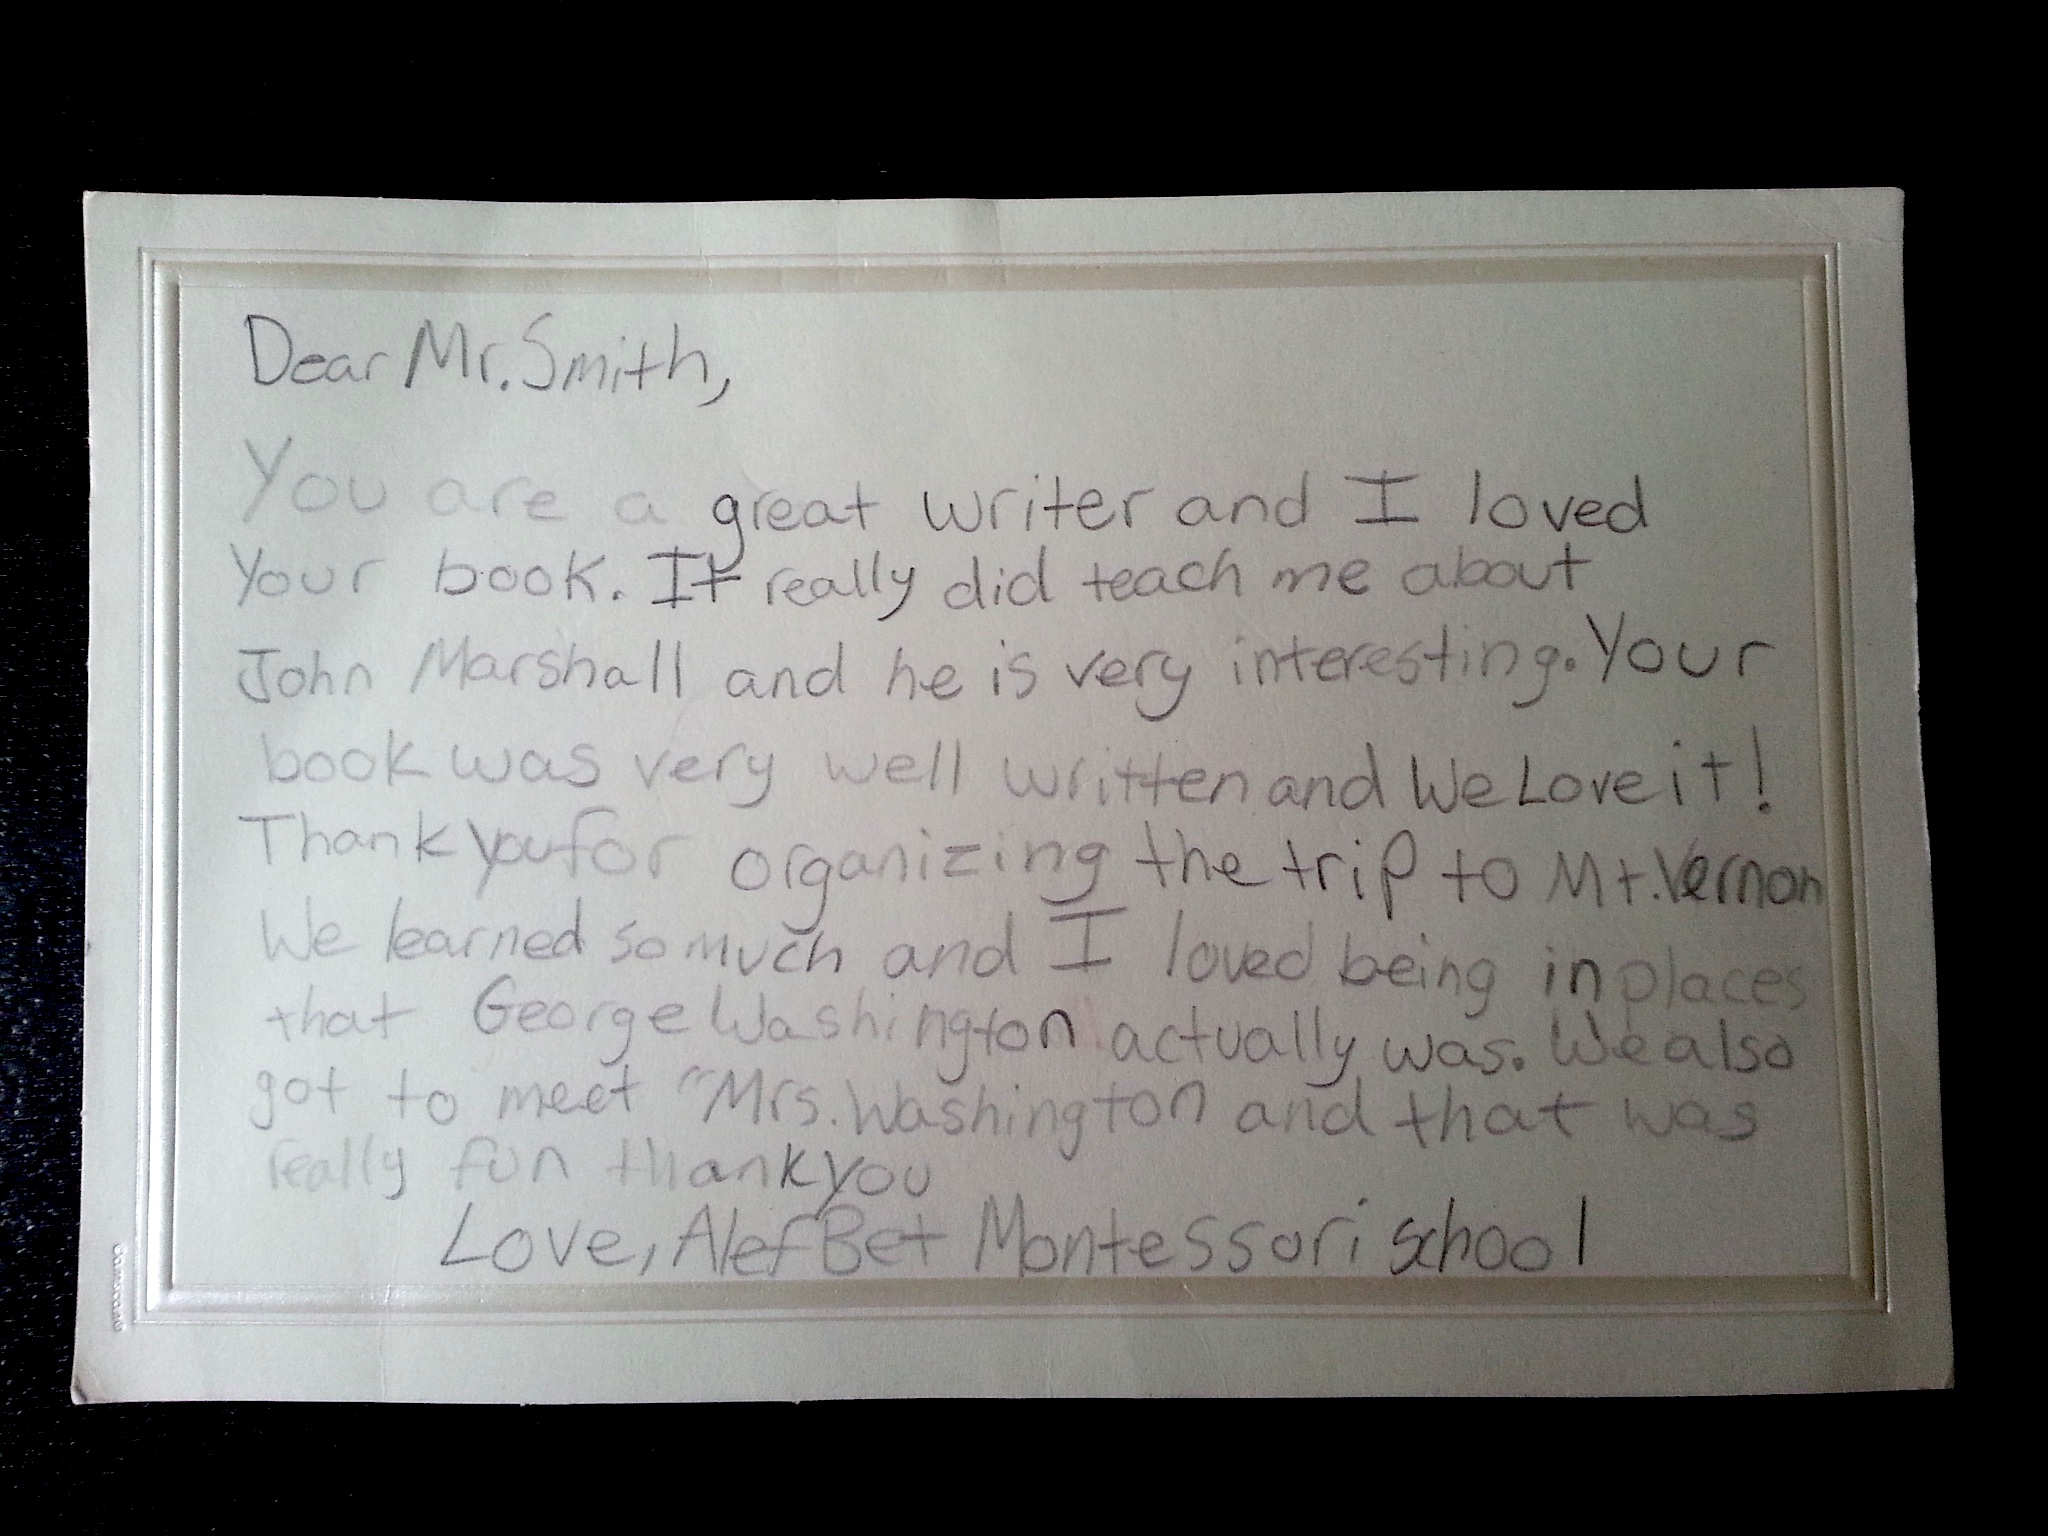 Dear Mr. Smith,
You are a great writer and I loved
Your book. It really did teach me about
John Marshall and he is very interesting. Your
book was very well written and We Love it!
Thank you for organizing the trip to Mt. Vernon
We learned so much and I loved being in places
that George Washington actually was. We also
got to meet "Mrs. Washington and that was
really fun thank you
Love, Alef Bet Montessori school